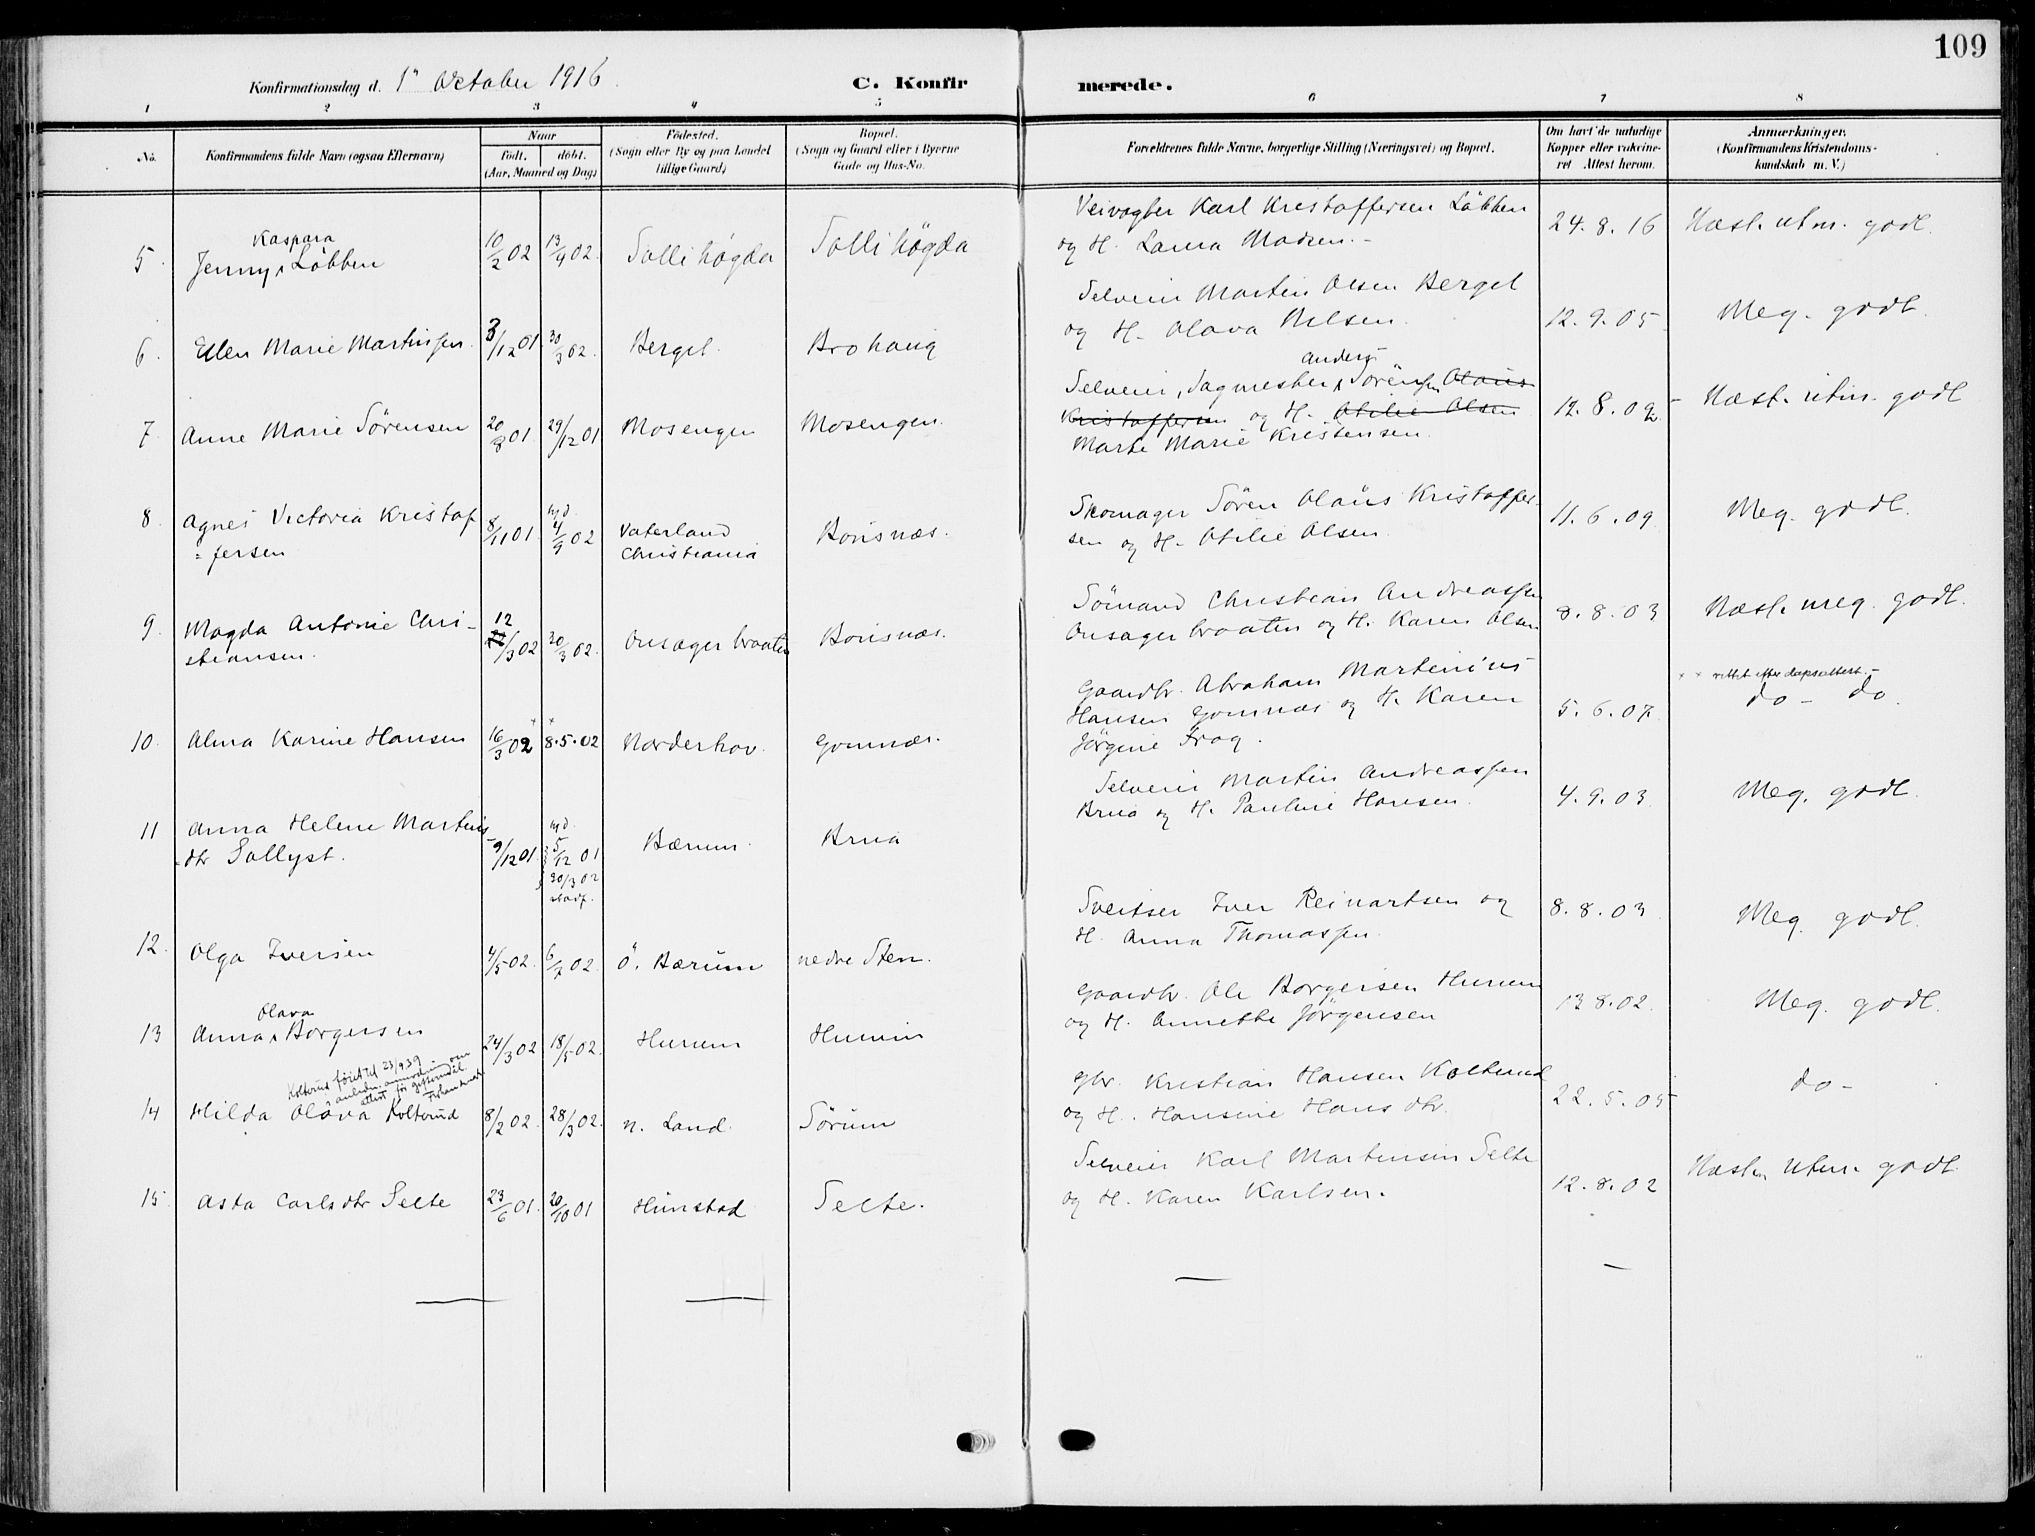 109
Konfirmationsdag d. 1ⁿ October 1916
C. Konfirmerede.
1 2 3 4 5 6 7 8
No.
Konfirmandens fulde Navn (ogsaa Efternavn)
Naar
født. døbt.
(Aar, Maaned og Dag)
Fødested.
(Sogn eller By og paa Landet
tillige Gaard)
Bopæl.
(Sogn og Gaard eller i Byerne
Gade og Hus-No.
Forældrenes fulde Navne, borgerlige Stilling (Næringsvei) og Bopæl.
Om havt de naturlige
Kopper eller vakcine-
ret Attest herom.
Anmærkninger.
(Konfirmandens Kristendoms-
kundskab m. V.)
Veivogter Karl Kristoffersen Løbben
Kaspara
5. Jenny Løbben 10/2 02 13/4 02 Sollihøgda Sollihøgda og H. Laura Madsen. 24.8.16 Næst. utm. godt.
Selveier Martin Olsen Berget
6. Ellen Marie Martinsen 3/12 01 30/3 02. Berget. Brohaug og H. Olava Nilsen. 12.9.05 Meg. godt.
Anders
Selveier, Sagmester Sørensen Olaus
7. Anne Marie Sørensen 20/8 01 29/12 01 Mosengen Mosengen. Kristoffersen og H. Otilie Olsen 12.8.02 Næst. utm. godt
Marte Marie Kristensen.
8. Agnes Victoria Kristof 8/11 01 hjd. 4/9 02 Vaterland Borisnæs. Skomager Søren Olaus Kristoffer- 11.6.09 Meg. godt.
=fersen Christiania sen og H. Otilie Olsen
9. Magda Antonie Chri- 12/3 02 30/3 02. Onsagerbraaten Borisnæs. Sømand Christian Andreassen 8.8.03 Næst. meg. godt.
stiansen. Onsagerbraaten og H. Karen Olsen.
Gaardbr. Abraham Martinius × × rettet efter daapsattest.
10. Alma Karine Hansen 16/3 02 × × 8.5.02 Norderhov. Gomnæs. Hansen Gomnæs og H. Karen 5.6.07. do - do.
Jørgine Frog.
Selveier Martin Andreassen
11 Anna Helene Martins 9/12 01 hjd. 5/12 01 Bærum. Brua Brua og H. Pauline Hansen. 4.9.03 Meg. godt.
=dtr Sollyst. 30/3 02
stadf.
12. Olga Iversen 4/5 02. 6/7 02. Ö. Bærum nedre Sten. Sveitser Iver Reinartsen og 8.8.03 Meg. godt.
H. Anna Thomassen.
Olava
13 Anna Borgersen 24/3 02 18/5 02. Hurum Hurum Gaardbr. Ole Borgersen Hurum 13 8.02. Meg. godt.
og H. Annette Jørgensen
Kolterud føiet til 23/9 39
14 Hilda Olava Kolterud 8/2 02. 28/3 02. n. Land. Sørum Gbr. Kristian Hansen Kolterud 22.5.05 do -
og H. Hansine Hansdtr.
15. Asta Carlsdtr Selte 23/6 01. 20/10 01 Hunstad Selte. Selveier Karl Martinsen Selte 12.8.02 Næsten utm. godt
og H. Karen Karlsen.